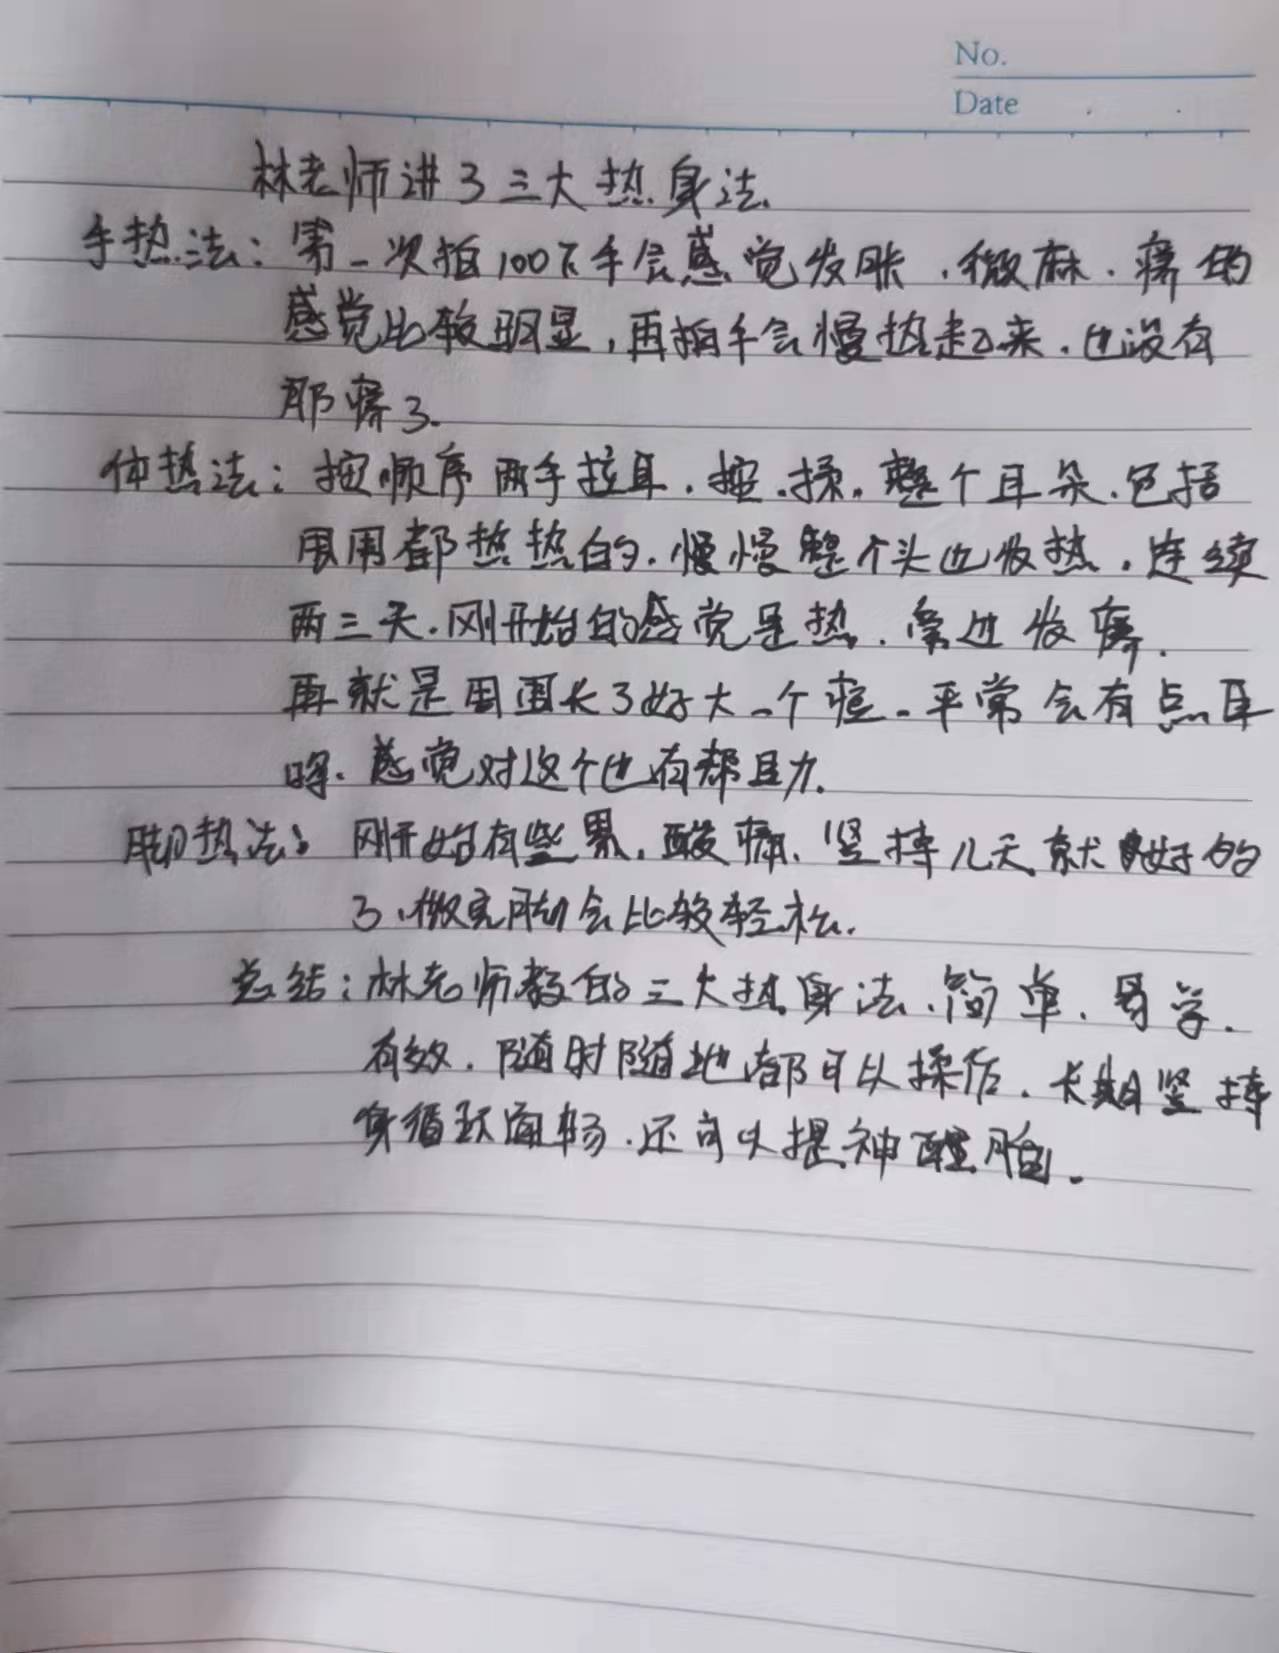 No.
Date
林老师讲了三大热身法
手热法：第一次拍100下手会感觉发胀，微麻，痛的
感觉比较明显，再拍手会慢热起来，也没有
那痛了.
体热法：按顺序两手拉耳，按，揉，整个耳朵，包括
周围都热热的，慢慢整个头也发热，连续
两三天，刚开始的感觉是热，旁边发痒，
再就是周围长了好大一个痘，平常会有点耳
鸣，感觉对这个也有帮助.
脚热法：刚开始有些累，酸痛，坚持几天就好的
了，做完脚会比较轻松.
总结：林老师教的三大热身法，简单，易学，
有效，随时随地都可以操作，长期坚持
身循环通畅，还可以提神醒脑.